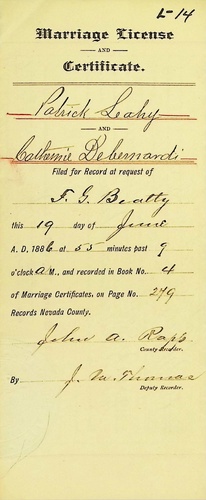 L-14
Marriage License
AND
Certificate.
Patrick Leahy
AND
Catherine Debernardi
Filed for Record at request of
F. G. Beatty
this 19 day of June
A. D. 1886 at 55 minutes past 9
o'clock A M., and recorded in Book No. 4
of Marriage Certificates, on Page No. 279
Records Nevada County.
John A. Rapp
County Recorder.
By J. M. Thomas
Deputy Recorder.